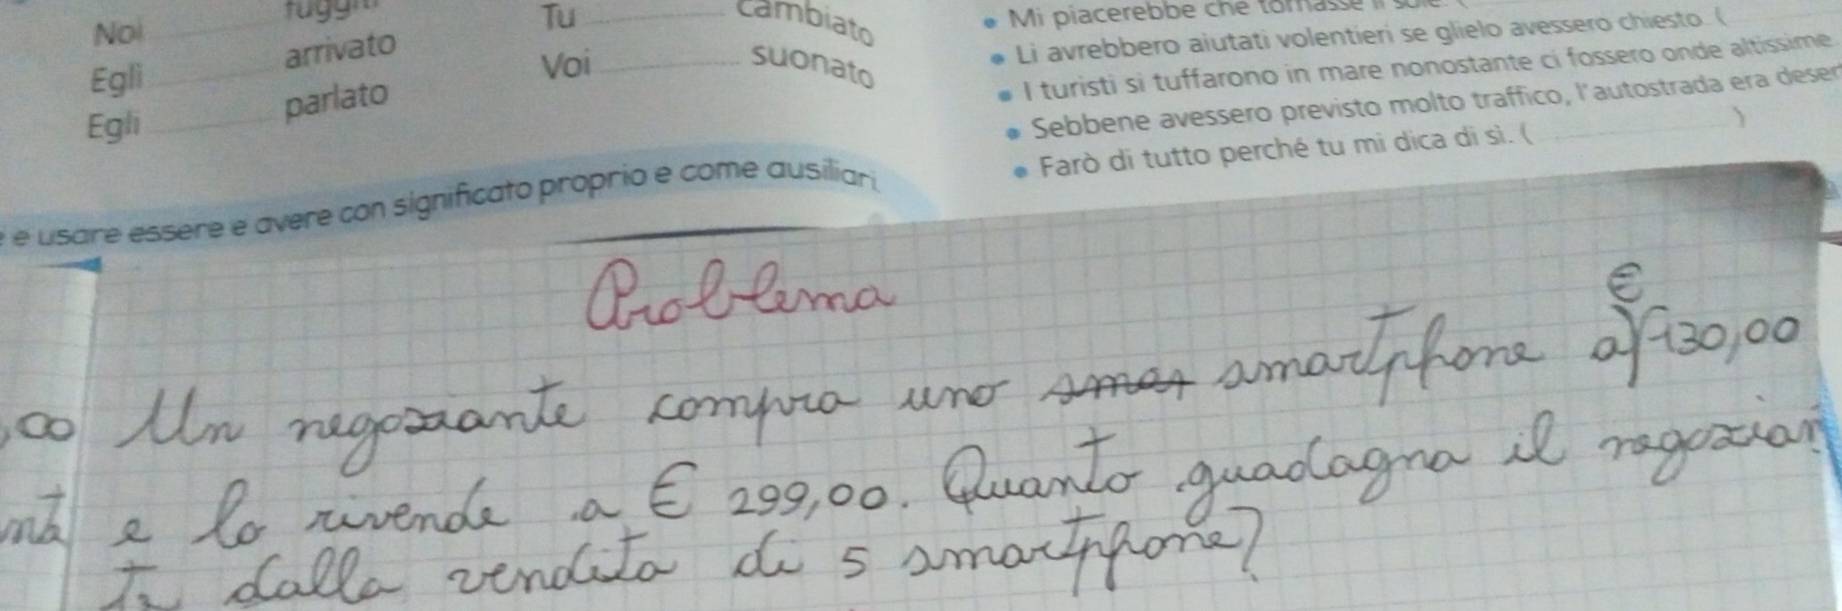 Noi
Tu
cambiato
Egli
arrivato
Voi
suonato
Egli
parlato
e usare essere e avere con significato proprio e come ausiliari
• Mi piacerebbe che tornasse il sole (
• Li avrebbero aiutati volentieri se glielo avessero chiesto. (
• I turisti si tuffarono in mare nonostante ci fossero onde altissime
• Sebbene avessero previsto molto traffico, l'autostrada era deser
• Farò di tutto perché tu mi dica di sì. ( )
Problema
Un negoziante compra uno smar smartphone a € 130,00
e lo rivende a € 299,00. Quanto guadagna il negozian
te dalla vendita di 5 smartphone?